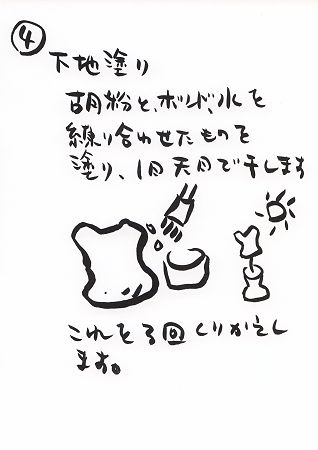 ④
下地塗り
胡粉と、ボンド、水を
練り合わせたものを
塗り、1日天日で干します
これを3回くりかえし
ます。